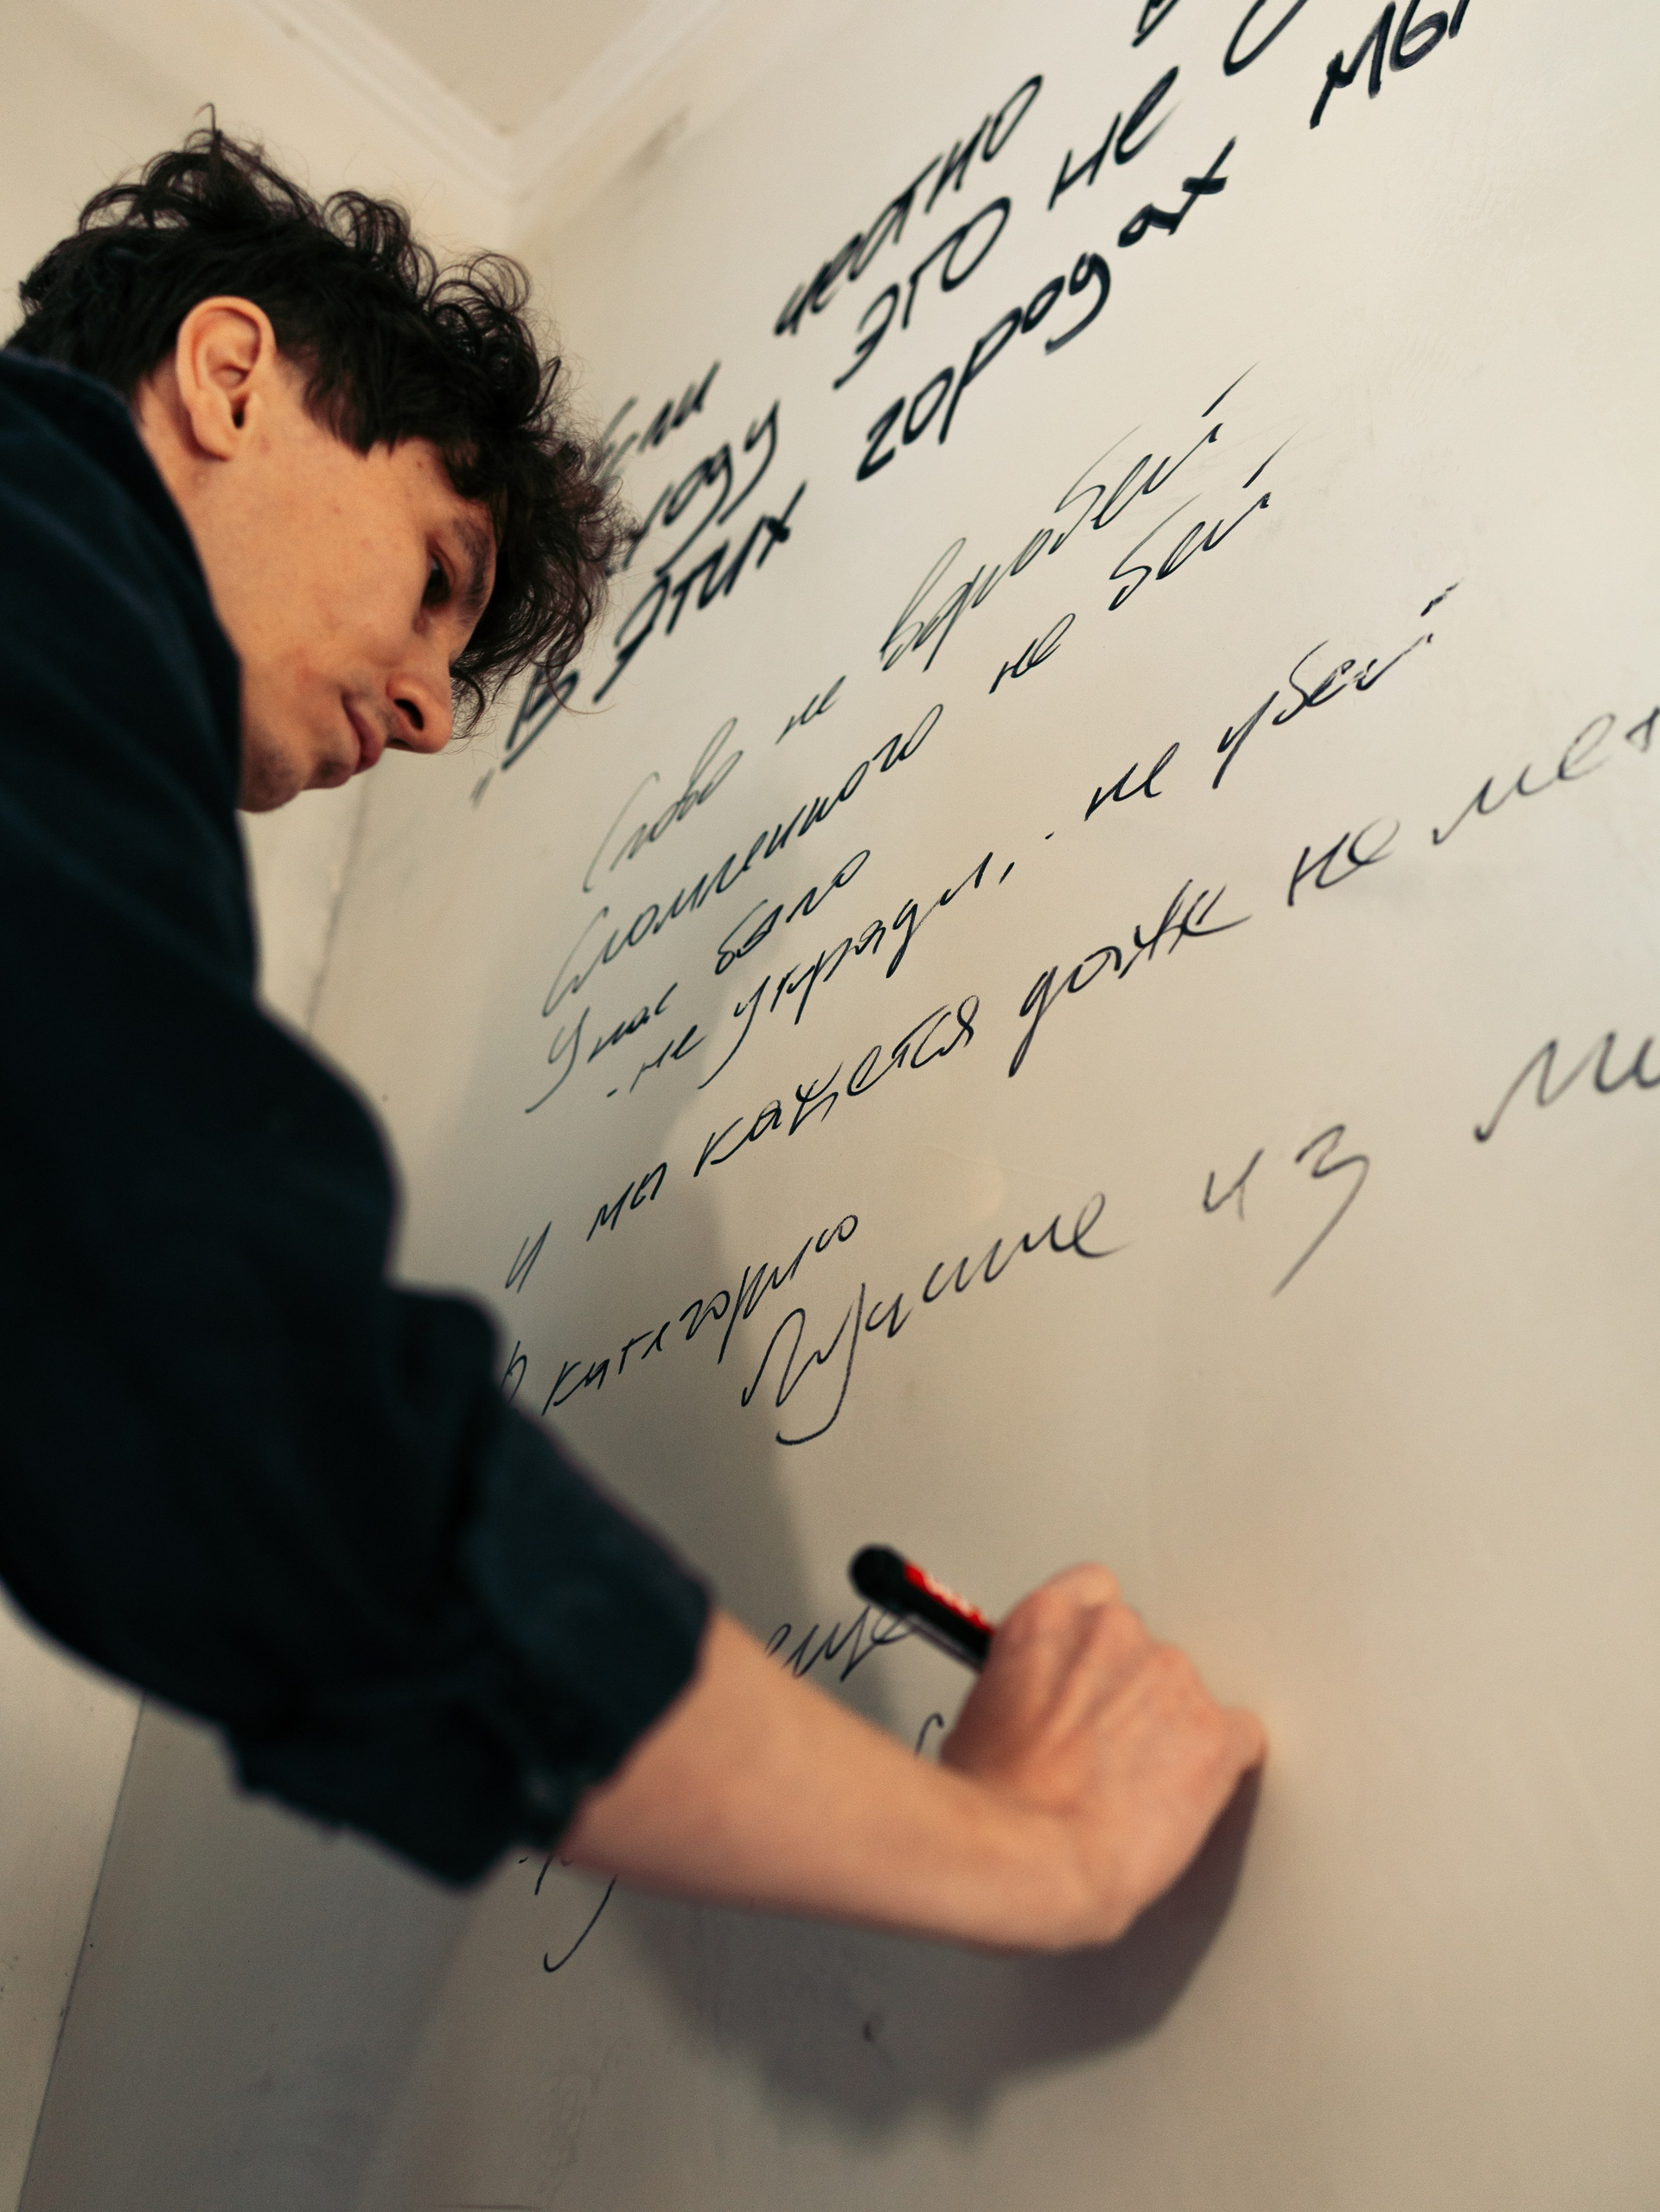 В
если честно
ходу это не
"В этих городах мы
Слово не воробей
Сломленного не бей
У нас было
- не укради, - не убей
и мы кажется даже не ме
в категорию
Лучшие из ми
еще